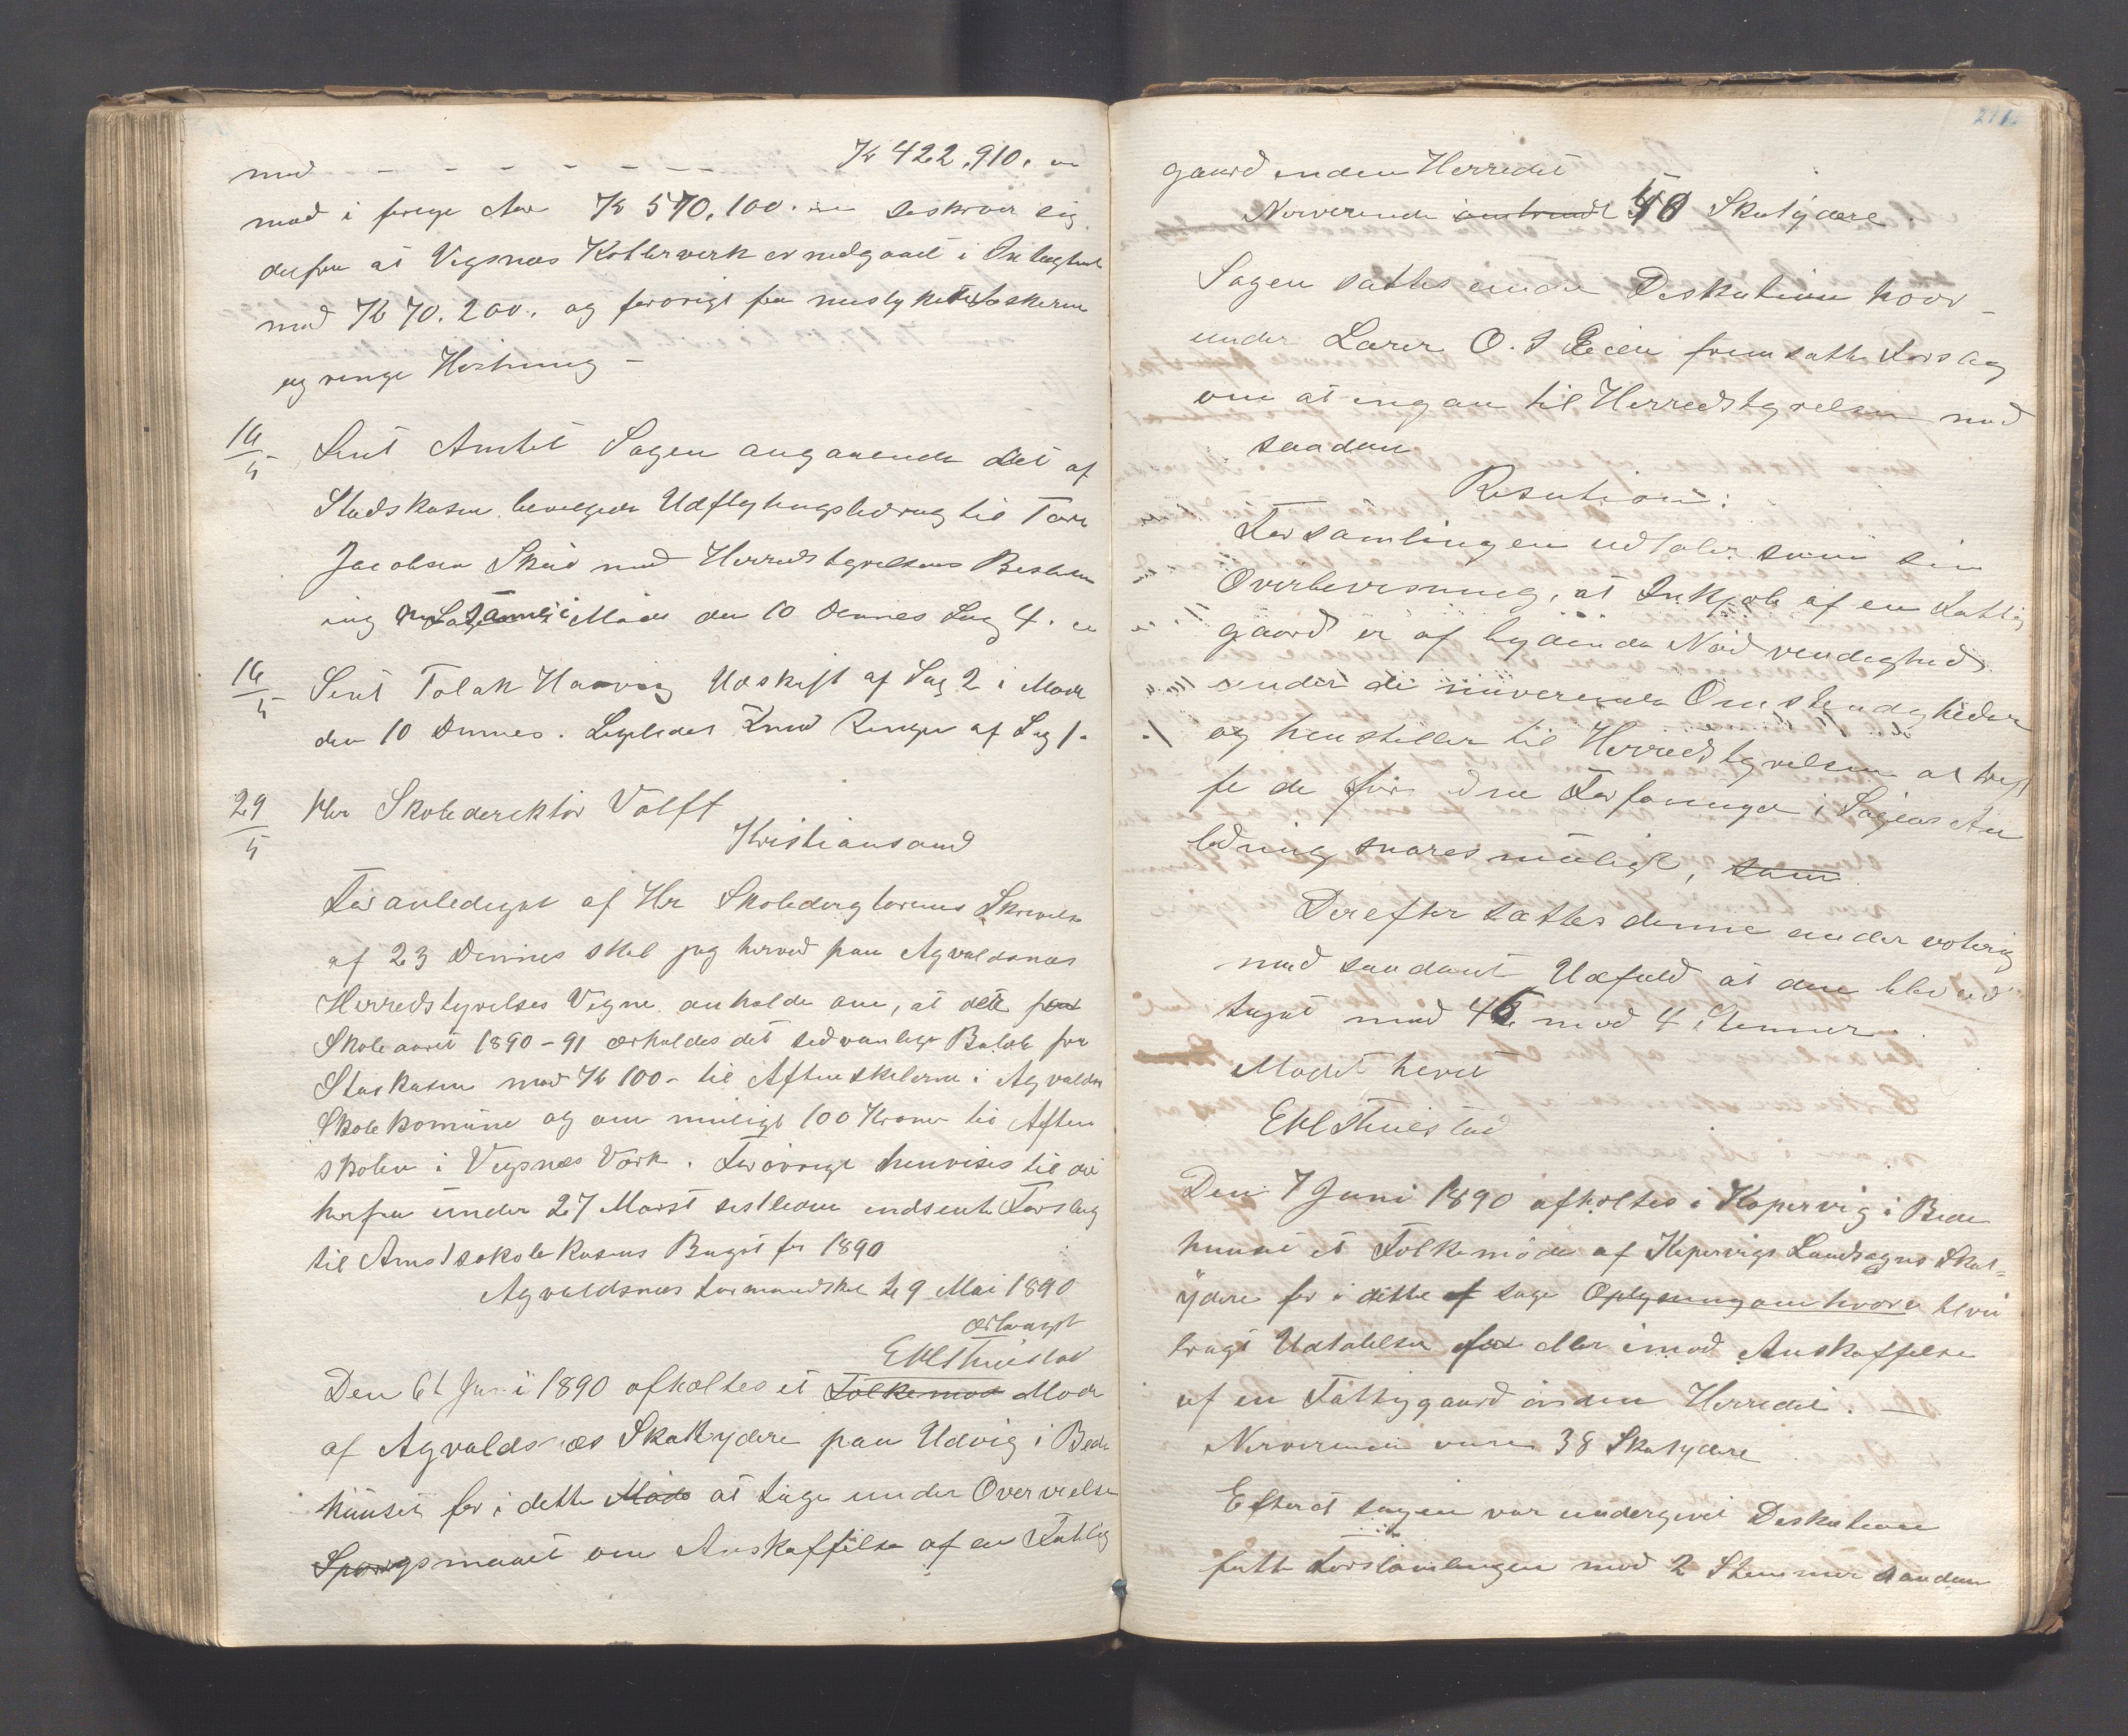 med - - - - - - - Kr 422,910.
mod i forrige Aar Kr 570,100. skriver sig
derfra at Vigsnæs Kobberverk er nedgaaet i Indtægt
med Kr 70.200. og forøvrigt fra mislykkede Fiskerier
og ringe Hyrtning -
16/5 Sent Amtet Sagen angaaende det af
Stadskasen bevilgede Udflytningsbidrag til Tore
Jacobsen Skeie med Herredstyrelsens Beslutn
ing i Møde den 10 Dennes Sag 4.
16/5 Sent Tolak Haavig Udskrift af Sag 2 i Møde
den 10 Dennes. Ligeledes Knud Ringen af Sag 1.
29/5 Hr Skoledirektør Volff
Kristiansand
Foranlediget af Hr Skoledirgtørens Skrivelse
af 23 Dennes skal jeg herved paa Agvaldsnæs
Herredstyrelses Vegne anholde om, at der for
Skoleaaret 1890-91 erholdes det sedvanlige Beløb fra
Staskasen med Kr 100- til Aftenskolerne i Agvaldsn
Skolekomune og om muligt 100 Kroner til Aften
skolen i Vigsnæs Værk. Forøvrigt henvises til det
herfra under 27 Marst sistleden indsente Forslag
til Amstsskolekasens Buget for 1890
Agvaldsnæs Formandskab 29 Mai 1890
ærbødigst
E Thuestad
Den 6te Juni 1890 afholtes et Folkemøde Møde
af Agvaldsnæs Skatydere paa Udvig i Bede
huuset for i dette Møde at tage under Overveielse
Spørgsmaalet om Anskaffelse af en Fattig
gaard inden Herredet
Nerverende omtrendt 50 Skatydere.
Sagen sattes under Diskution hvor
under Lærer O. S Eeien fremsatte Forslag
om at ingaa til Herredstyrelsen med
saadan
Resution:
Forsamlingen udtaler som sin
Overbevisning, at Inkjøb af en Fattig
gaard er af bydende Nødvendighed
under de nuverende Omstendigheder
og henstiller til Herredstyrelsen at tref
fe de fornødne Forføininger i Sagens An
ledning snarest muligt, som
Derefter sattes denne under votering
med saadant Udfald at den blev ved
taget med 46 mod 4 Stemmer.
Mødet hevet
E Thuestad
Den 7 Juni 1890 afholtes i Kopervig i Bede
huuset et Folkemøde af Kopervigs Landsogns Skat=
ydere for i dette at tage Oplysning om hvor blevet
bragt Udtalelse for eller imod Anskaffelse
af en Fattiggaard inden Herredet. -
Nerverende vare 38 Skatydere
Efterat sagen var undergivet Diskution
fatte Forsamlingen mod 2 Stemmer saadan